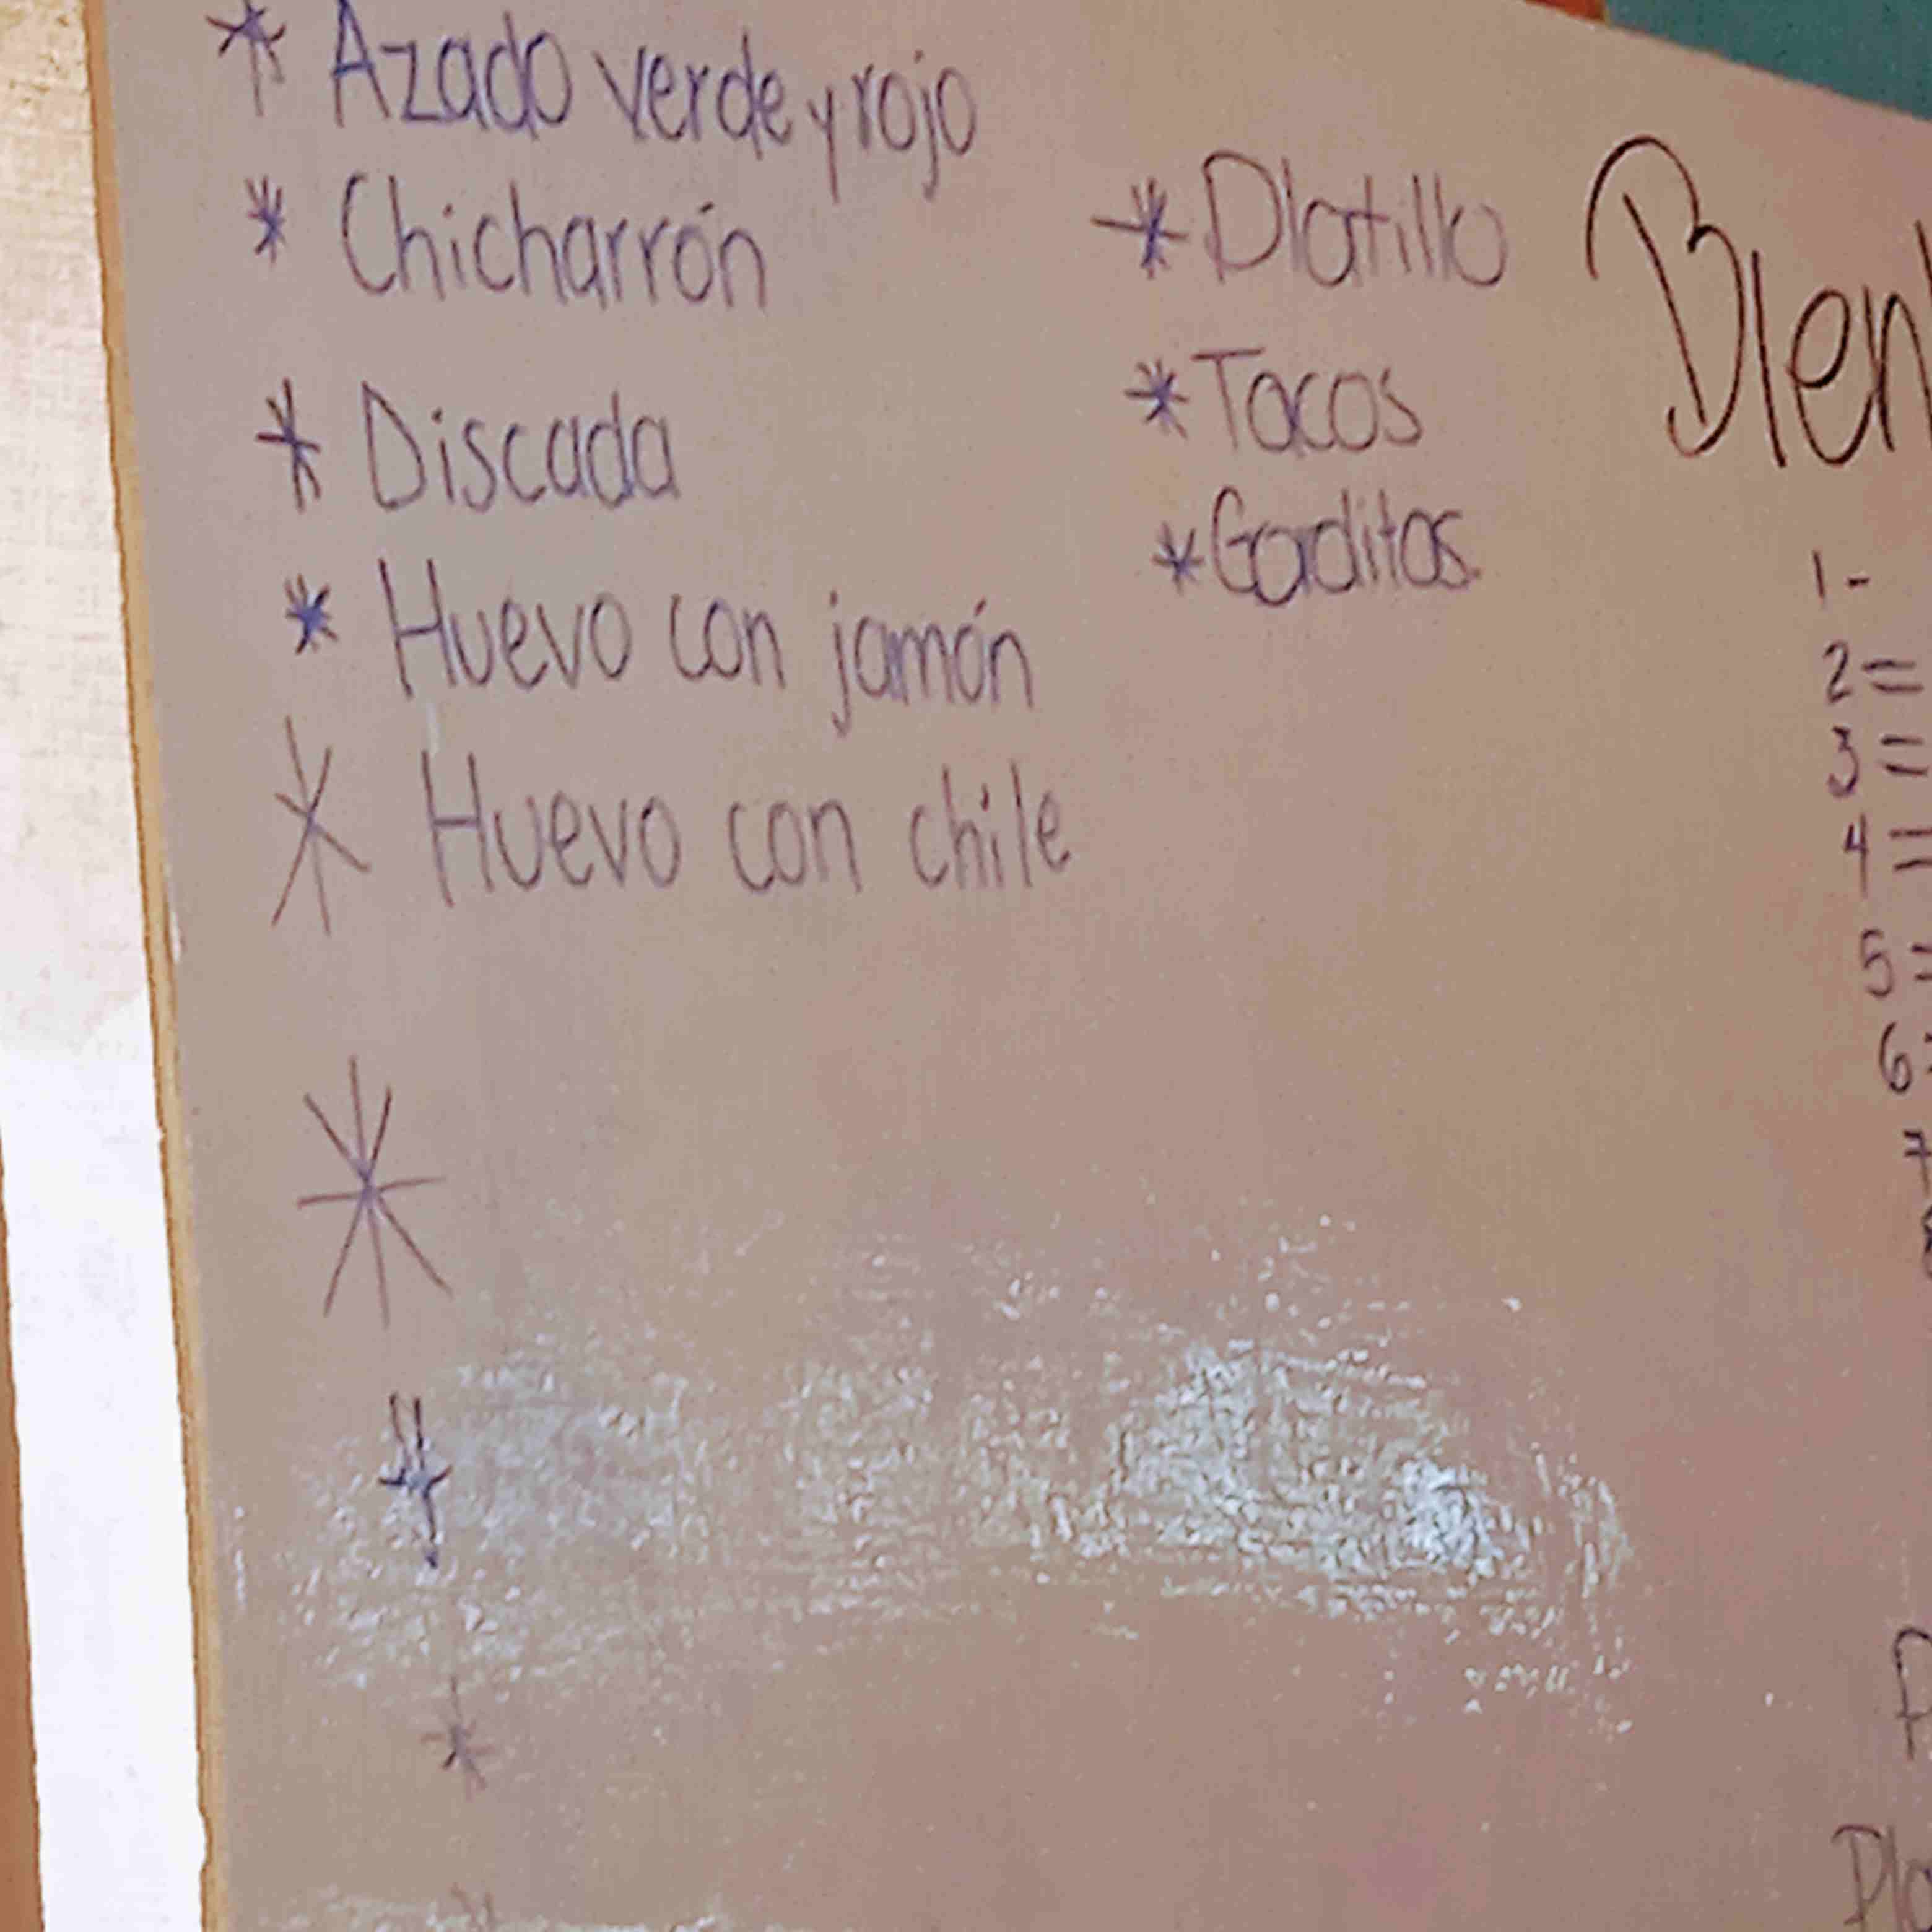 * Azado verde y rojo
* Chicharrón
* Discada
* Huevo con jamón
* Huevo con chile
*
*
*
* Platillo
* Tacos
* Gorditas
Bien
1-
2=
3=
4=
5=
6=
7
8
Pla